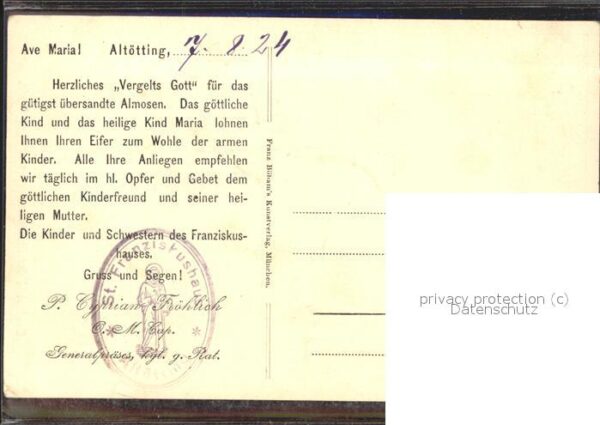 Ave Maria! Altötting, 7. 8. 24
Herzliches „Vergelts Gott“ für das
gütigst übersandte Almosen. Das göttliche
Kind und das heilige Kind Maria lohnen
Ihnen Ihren Eifer zum Wohle der armen
Kinder. Alle Ihre Anliegen empfehlen
wir täglich im hl. Opfer und Gebet dem
göttlichen Kinderfreund und seiner hei-
ligen Mutter.
Die Kinder und Schwestern des Franziskus-
hauses.
Gruss und Segen!
P. Cyprian Fröhlich
O. M. Cap.
Generalpräses, kgl. g. Rat.
St. Franziskushaus
Franz Böham's Kunstverlag, München.
privacy protection (c)
Datenschutz